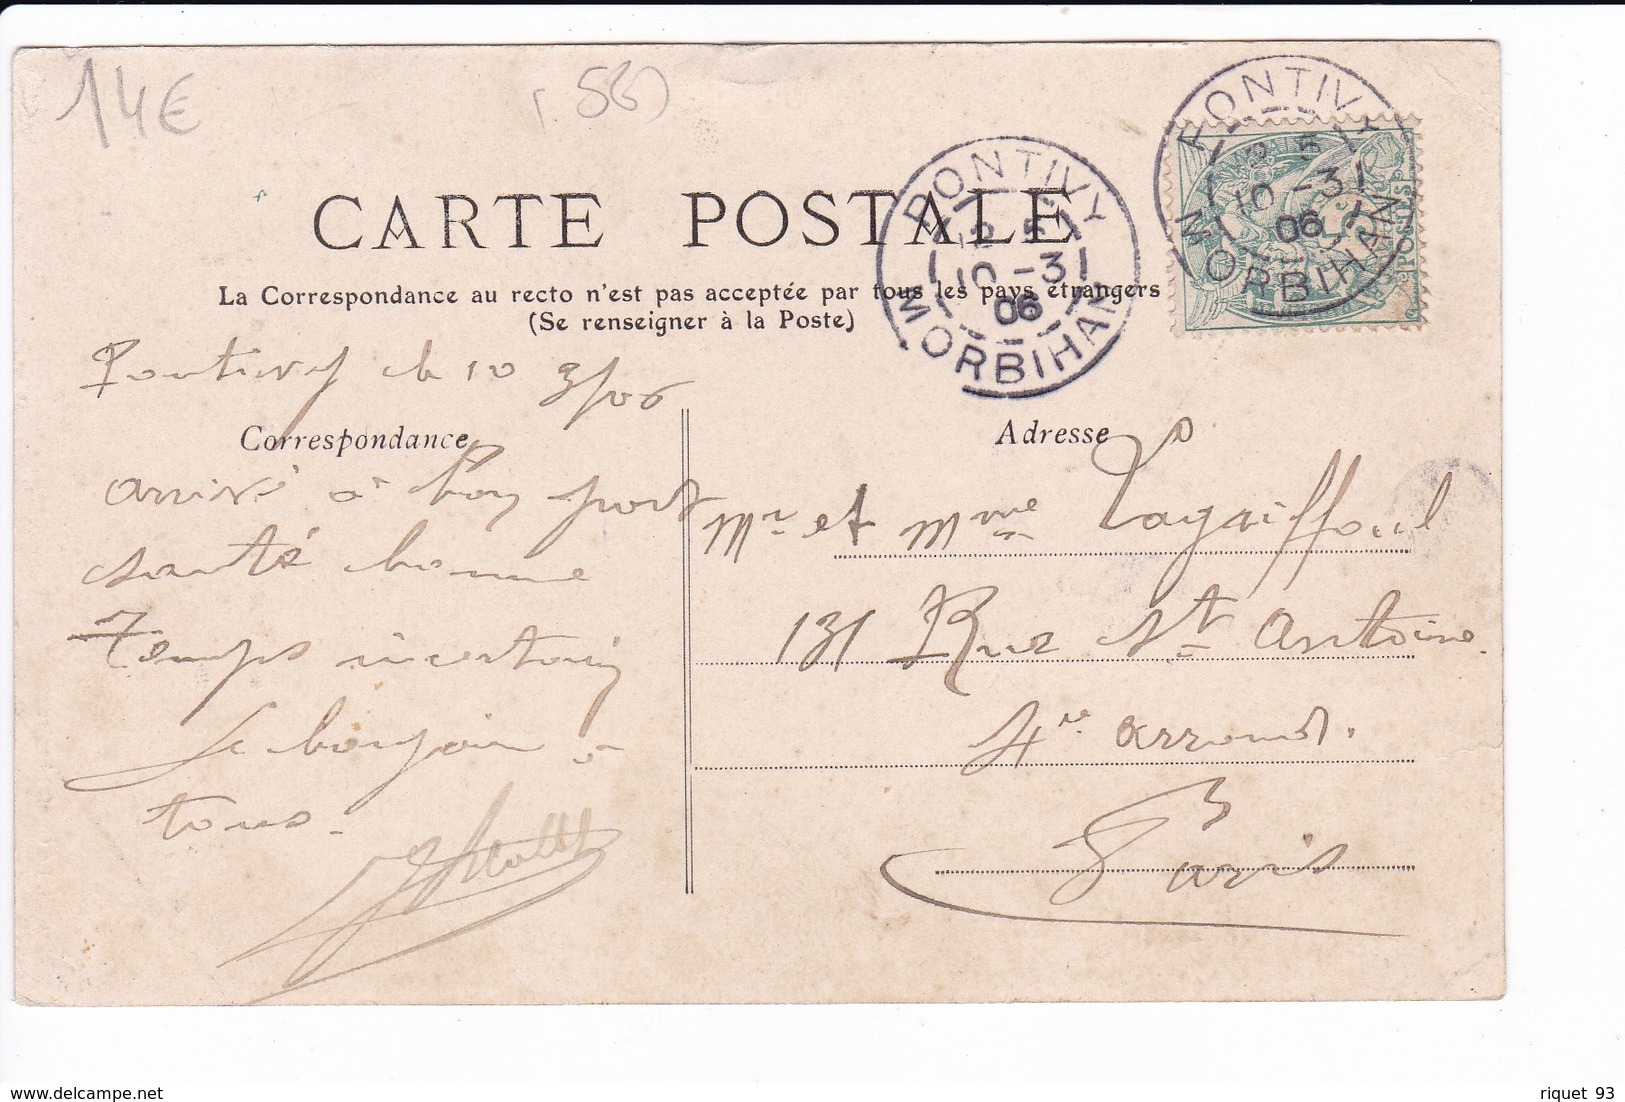 14€
(56)
CARTE POSTALE
La Correspondance au recto n'est pas acceptée par tous les pays étrangers
(Se renseigner à la Poste)
PONTIVY
2 5
10 -3
06
MORBIHAN
PONTIVY
2 5
10 -3
06
MORBIHAN
POSTES
Pontivy le 10 3/06
Correspondance
arrivé à bon port
santé bonne
Temps incertain
Le bonjour à
tous.
Adresse
Mr et Mme Lagaiffoul
131 Rue St Antoine.
4e arrond.
Paris
delcampe.net
riquet 93